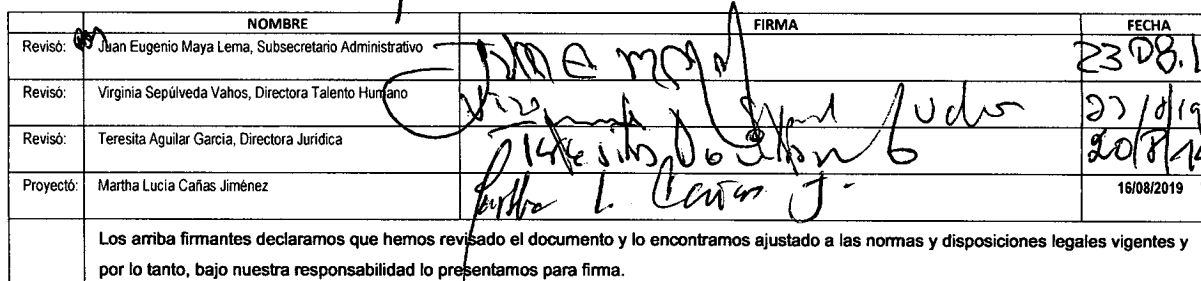 NOMBRE FIRMA FECHA
Revisó: Juan Eugenio Maya Lema, Subsecretario Administrativo 23 08.1
Revisó: Virginia Sepúlveda Vahos, Directora Talento Humano
Revisó: Teresita Aguilar Garcia, Directora Jurídica 20/8/19
Proyectó: Martha Lucia Cañas Jiménez Martha L. Cañas J. 16/08/2019
Los arriba firmantes declaramos que hemos revisado el documento y lo encontramos ajustado a las normas y disposiciones legales vigentes y
por lo tanto, bajo nuestra responsabilidad lo presentamos para firma.